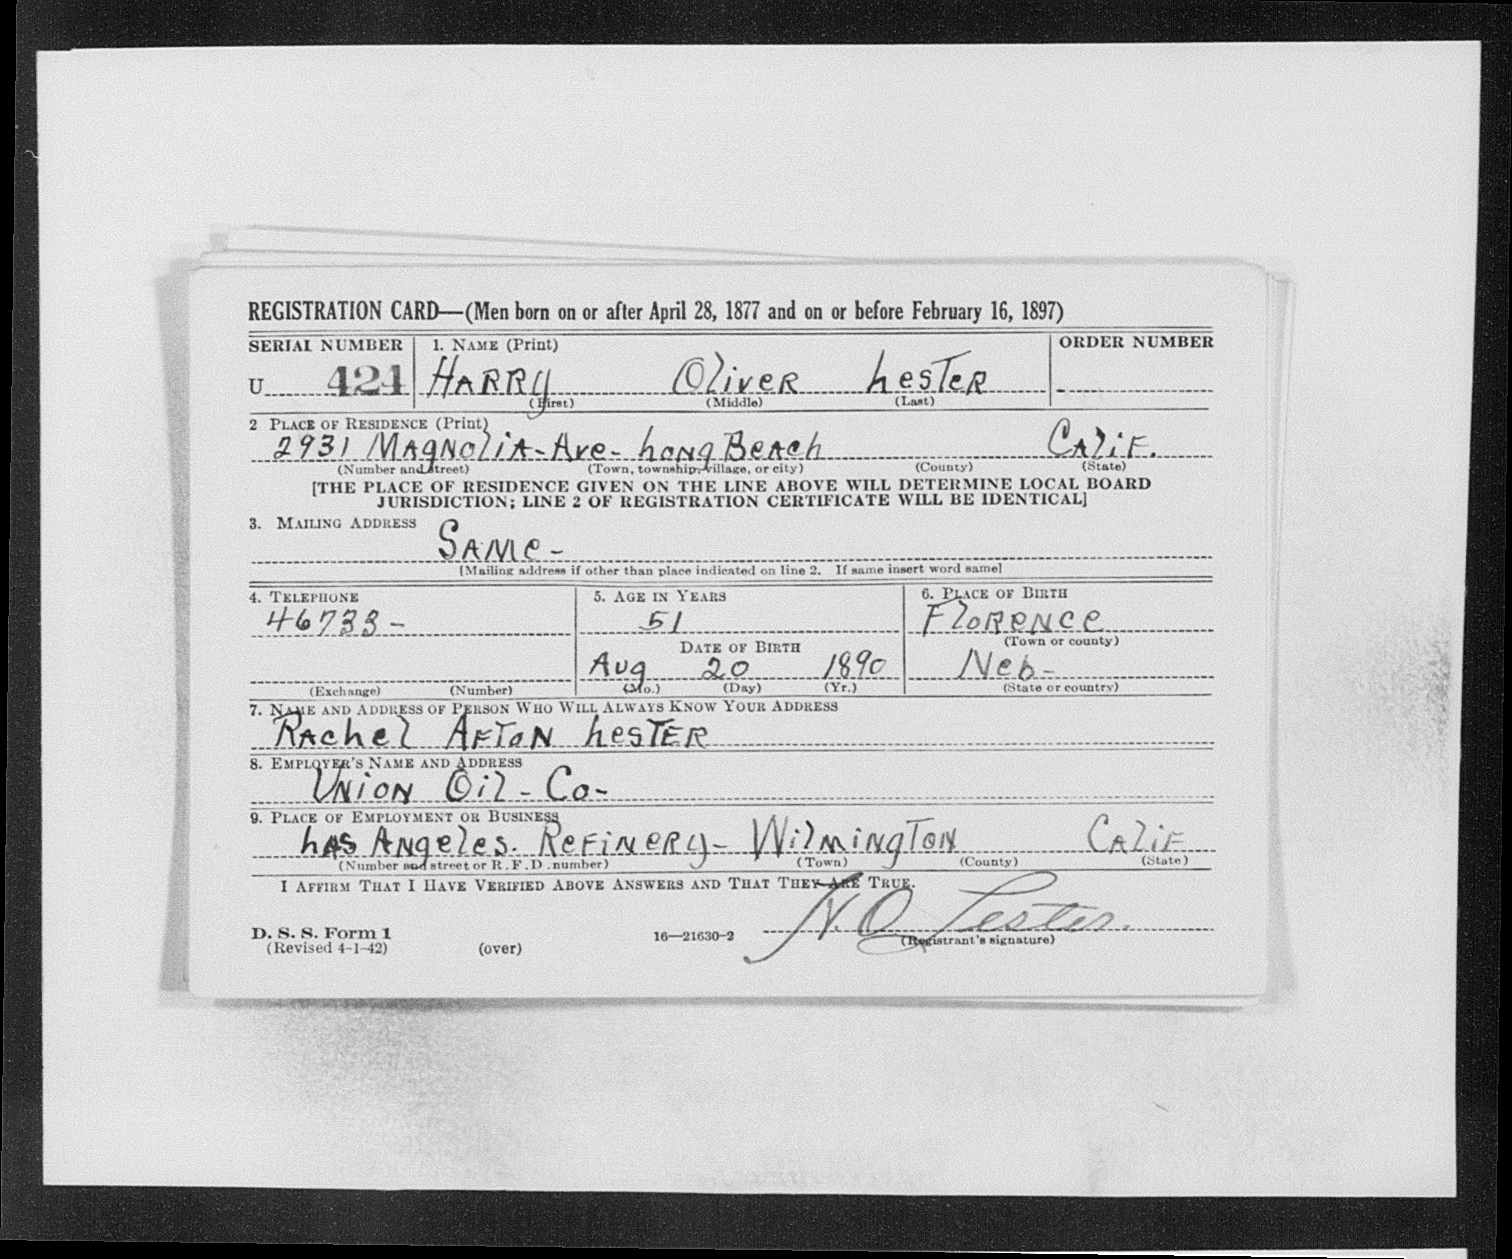 REGISTRATION CARD—(Men born on or after April 28, 1877 and on or before February 16, 1897)
SERIAL NUMBER 1. NAME (Print) ORDER NUMBER
U 424 HARRY Oliver Lester
(First) (Middle) (Last)
2 PLACE OF RESIDENCE (Print)
2931 Magnolia-Ave- Long Beach Calif.
(Number and street) (Town, township, village, or city) (County) (State)
[THE PLACE OF RESIDENCE GIVEN ON THE LINE ABOVE WILL DETERMINE LOCAL BOARD
JURISDICTION; LINE 2 OF REGISTRATION CERTIFICATE WILL BE IDENTICAL]
3. MAILING ADDRESS
Same-
[Mailing address if other than place indicated on line 2. If same insert word same]
4. TELEPHONE 5. AGE IN YEARS 6. PLACE OF BIRTH
46733- 51 Florence
(Town or county)
DATE OF BIRTH
Aug 20 1890 Neb-
(Exchange) (Number) (Mo.) (Day) (Yr.) (State or country)
7. NAME AND ADDRESS OF PERSON WHO WILL ALWAYS KNOW YOUR ADDRESS
Rachel Afton Lester
8. EMPLOYER'S NAME AND ADDRESS
Union Oil-Co-
9. PLACE OF EMPLOYMENT OR BUSINESS
Las Angeles. Refinery- Wilmington Calif
(Number and street or R. F. D. number) (Town) (County) (State)
I AFFIRM THAT I HAVE VERIFIED ABOVE ANSWERS AND THAT THEY ARE TRUE.
H. O. Lester.
D. S. S. Form 1
(Revised 4-1-42) (over) 16—21630-2 (Registrant's signature)